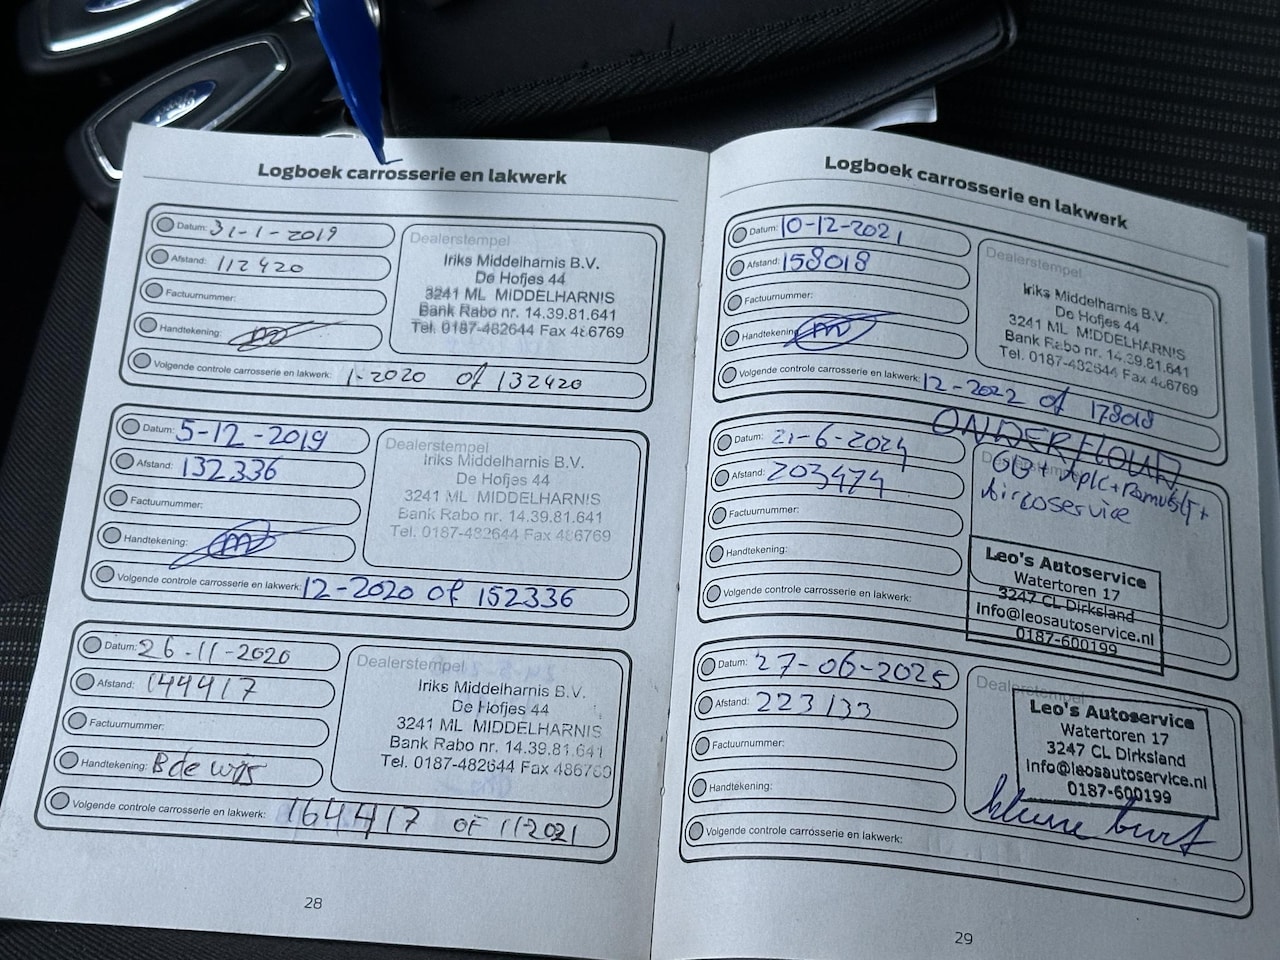 Ford
Logboek carrosserie en lakwerk
Datum: 31-1-2019
Afstand: 112420
Factuurnummer:
Handtekening:
Volgende controle carrosserie en lakwerk: 1-2020 of 132420
Dealerstempel
Iriks Middelharnis B.V.
De Hofjes 44
3241 ML MIDDELHARNIS
Bank Rabo nr. 14.39.81.641
Tel. 0187-482644 Fax 486769
Datum: 5-12-2019
Afstand: 132336
Factuurnummer:
Handtekening:
Volgende controle carrosserie en lakwerk: 12-2020 of 152336
Dealerstempel
Iriks Middelharnis B.V.
De Hofjes 44
3241 ML MIDDELHARNIS
Bank Rabo nr. 14.39.81.641
Tel. 0187-482644 Fax 486769
Datum: 26-11-2020
Afstand: 144417
Factuurnummer:
Handtekening: B de wijs
Volgende controle carrosserie en lakwerk: 164417 OF 11 2021
Dealerstempel
Iriks Middelharnis B.V.
De Hofjes 44
3241 ML MIDDELHARNIS
Bank Rabo nr. 14.39.81.641
Tel. 0187-482644 Fax 486769
28
Logboek carrosserie en lakwerk
Datum: 10-12-2021
Afstand: 158018
Factuurnummer:
Handtekening:
Volgende controle carrosserie en lakwerk: 12-2022 of 178018
Dealerstempel
Iriks Middelharnis B.V.
De Hofjes 44
3241 ML MIDDELHARNIS
Bank Rabo nr. 14.39.81.641
Tel. 0187-482644 Fax 486769
Datum: 21-6-2024
Afstand: 203474
Factuurnummer:
Handtekening:
Volgende controle carrosserie en lakwerk:
ONDERHOUD
GB + Aplc +
Aircoservice
Leo's Autoservice
Watertoren 17
3247 CL Dirksland
info@leosautoservice.nl
0187-600199
Datum: 27-06-2025
Afstand: 223133
Factuurnummer:
Handtekening:
Volgende controle carrosserie en lakwerk:
Dealerstempel
Leo's Autoservice
Watertoren 17
3247 CL Dirksland
info@leosautoservice.nl
0187-600199
kleine burt
29